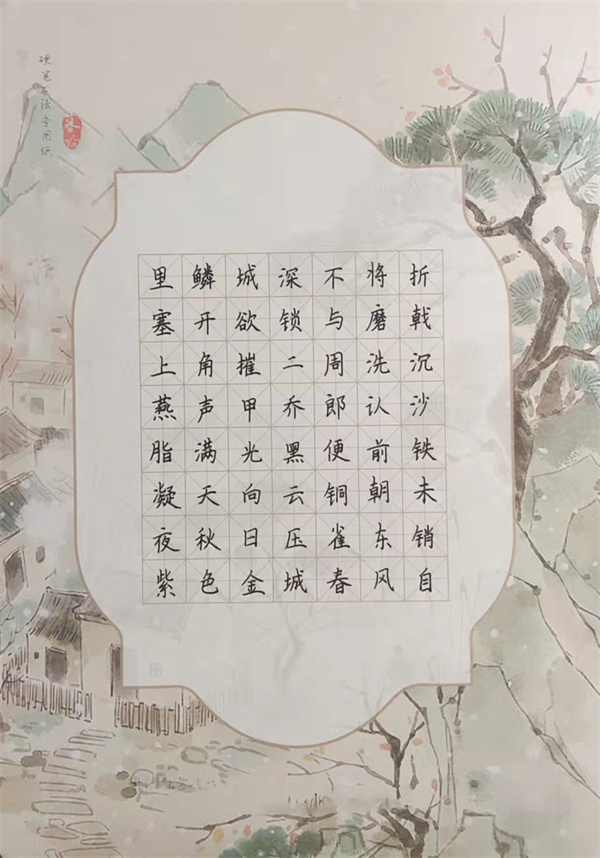 折戟沉沙铁未销自
将磨洗认前朝东风
不与周郎便铜雀春
深锁二乔黑云压城
城欲摧甲光向日金
鳞开角声满天秋色
里塞上燕脂凝夜紫
硬笔书法专用纸